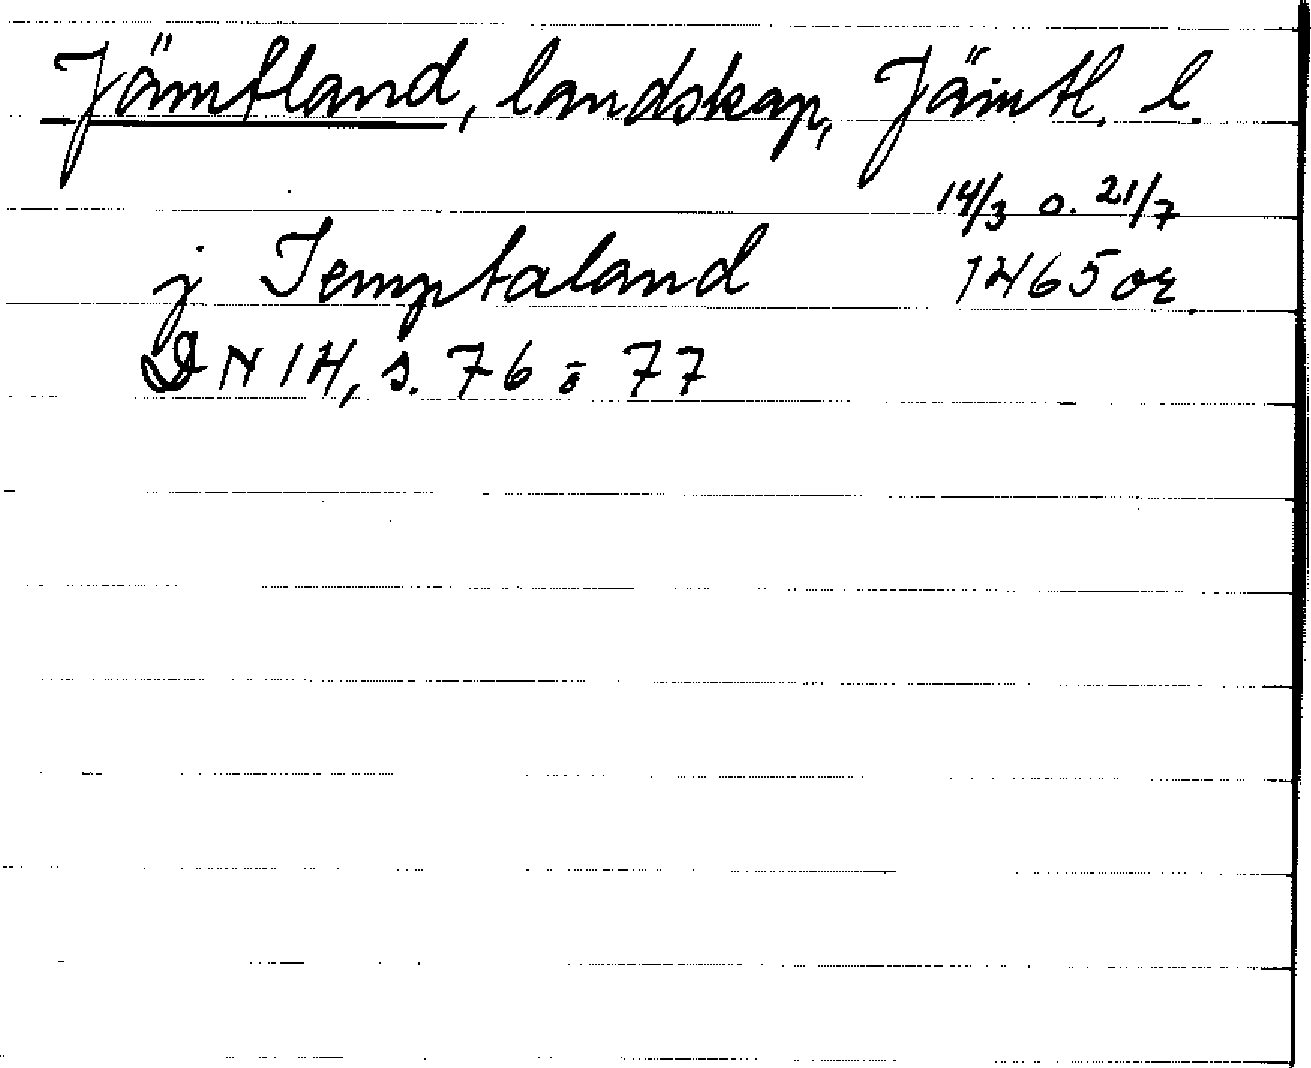 Jämtland, landskap, Jämtl. l.
14/3 o. 21/7
j Temptaland 1465 or.
DN 14, s. 76 o 77